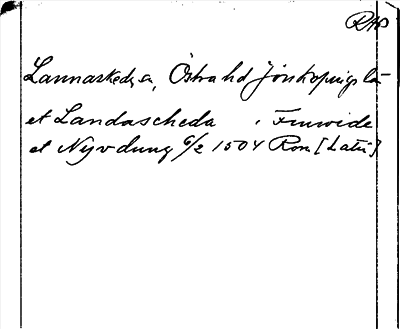 RAP
Lannaskede sn, Östra hd Jönköpings län
et Landascheda i Finwide
et Nyvdung 6/2 1504 Rom [Latin]